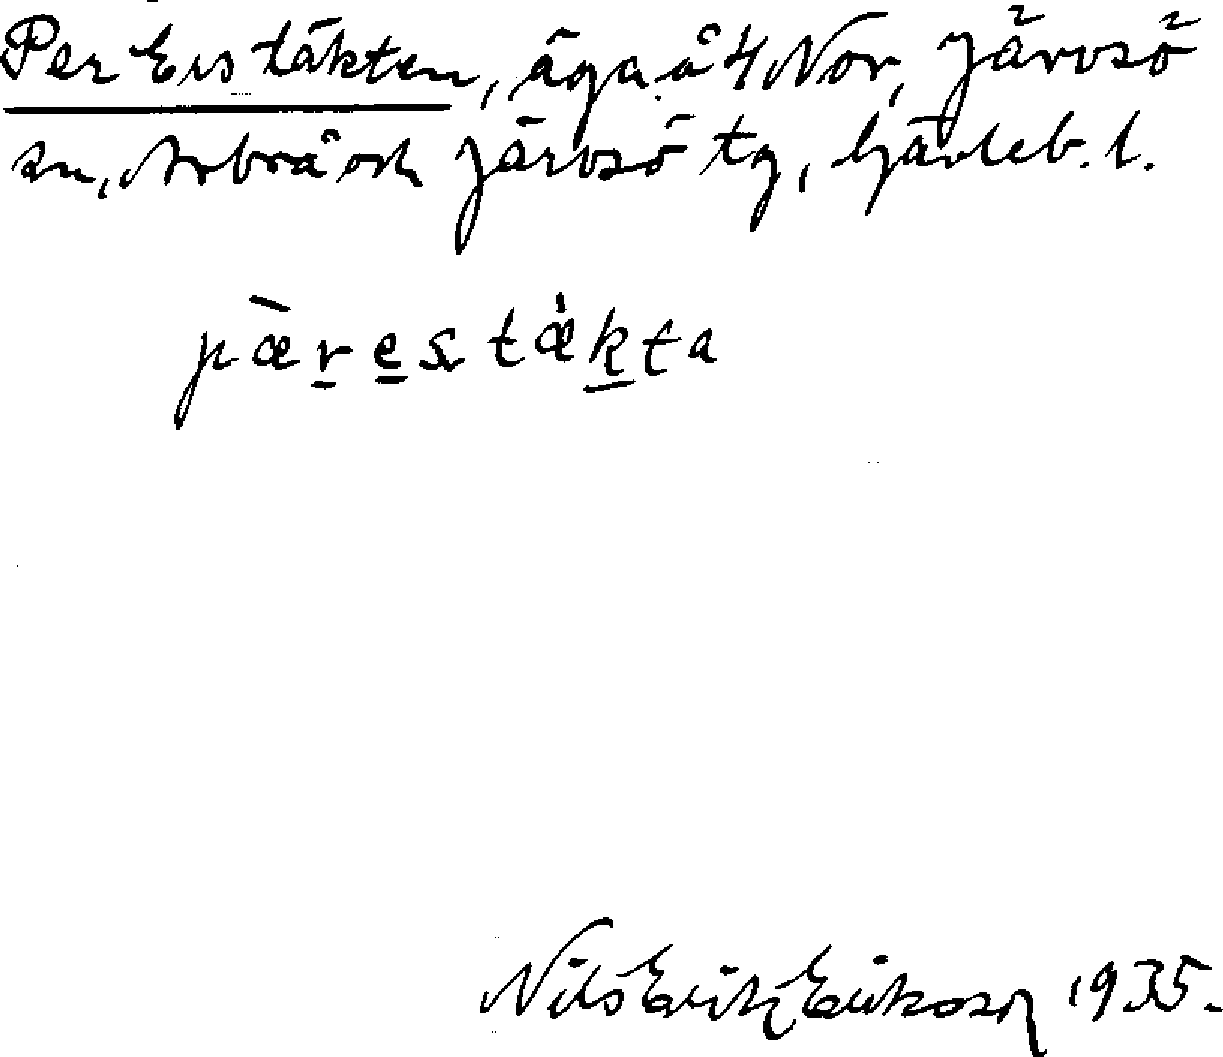 Per Ers täkten, äga å 4 Nor, Järvsö
sn, Arbrå och Järvsö tg, Gävleb. l.
pæ̀restækta
Nils Erik Eriksson 1935.